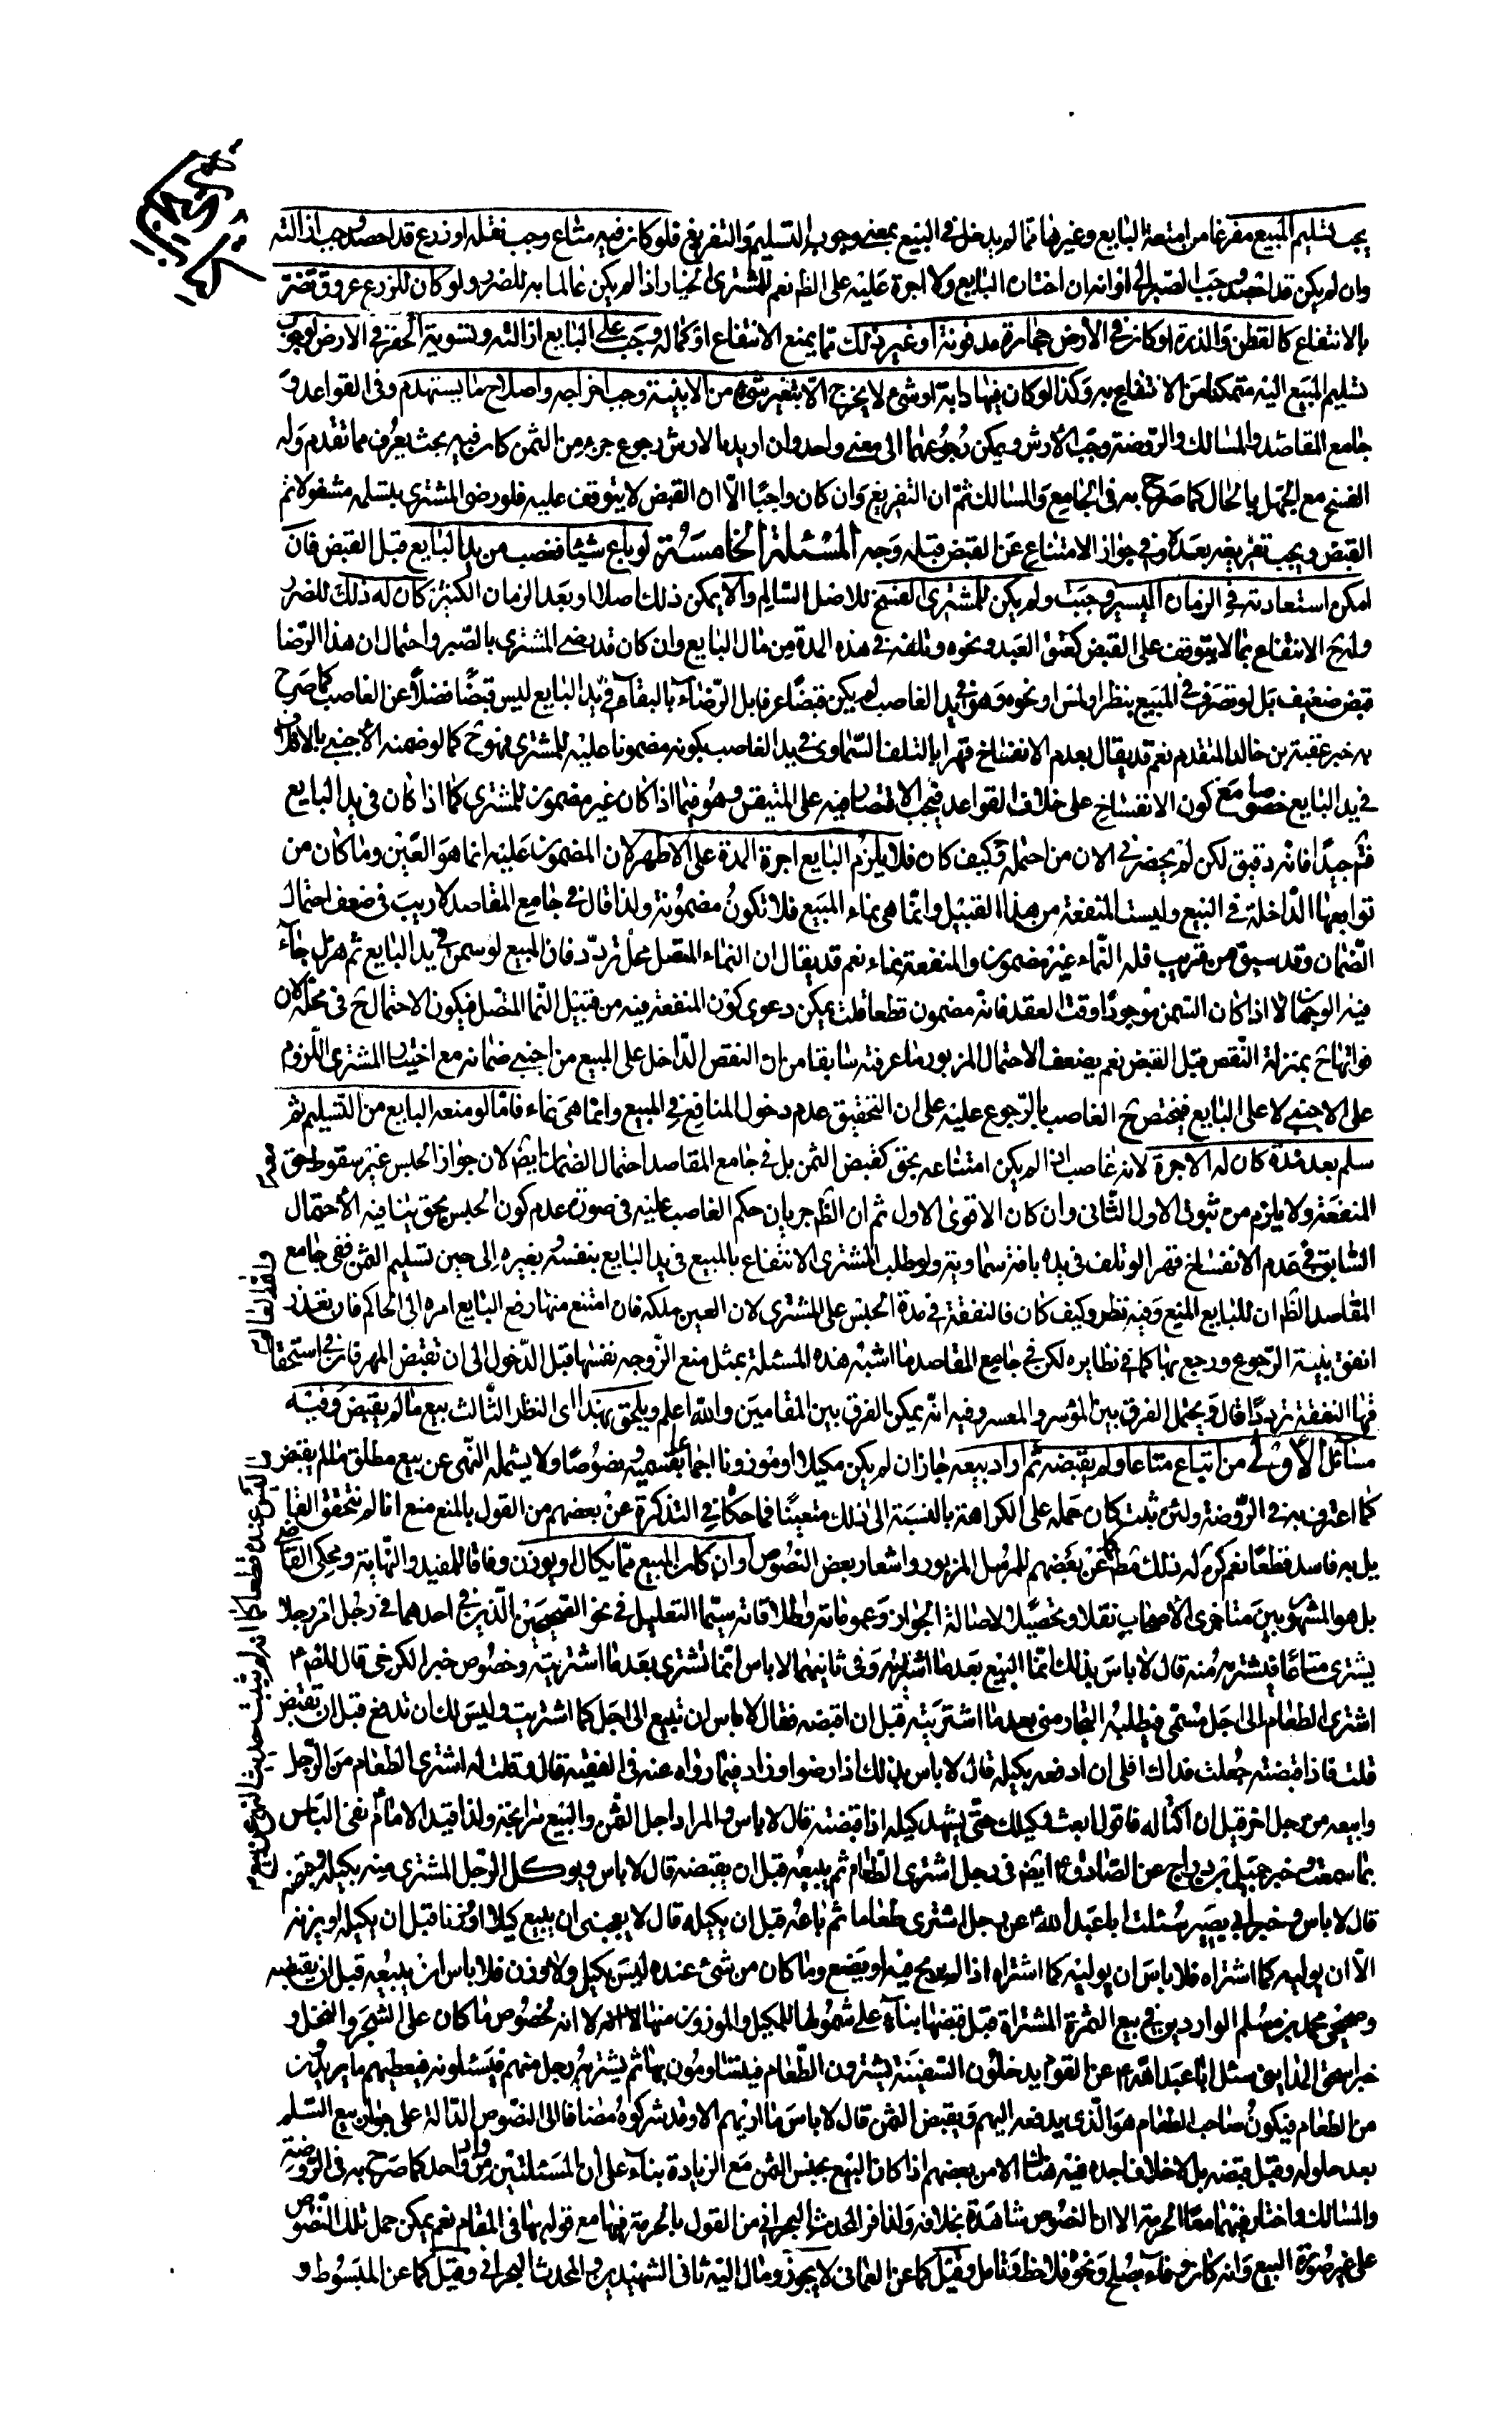 يجب تسليم المبيع مفرغا من امتعة البايع وغيرها مما لم يدخل في البيع بمعنى وجوب التسليم والتفريغ فلو كان فيه متاع وجب نقله او زرع قد احصد وجب ازالته
وان لم يكن قد احصد وجب الصبر الى اوانه ان اختاره البايع ولا اجرة عليه على الظ نعم للمشترى الخيار اذا لم يكن عالما به للضرر ولو كان للزرع عروق تضر
بالانتفاع كالقطن والذرة او كان في الأرض حجارة مدفونة او غير ذلك مما يمنع الانتفاع او كماله وجب على البايع ازالته وتسوية الحفر في الارض لوجوب
تسليم المبيع اليه متمكنا من الانتفاع به وكذا لو كان فيها دابة او شئ لا يخرج الا بتغير شئ من الابنية وجب اخراجه واصلاح ما يستهدم وفى القواعد و
جامع المقاصد والمسالك والروضة وجب الأرش ويمكن رجوعهما الى معنى واحد وان اريد بالارش رجوع جزء من الثمن كان فيه بحث يعرف مما تقدم وله
الفسخ مع الجهل بالحال كما صرح به في الجامع والمسالك ثم ان التفريغ وان كان واجبا الا ان القبض لا يتوقف عليه فلو رضى المشترى بتسلمه مشغولا تم
القبض ويجب تفريغه بعده وفي جواز الامتناع عن القبض قبله وجه المسئلة الخامسة لو باع شيئا فغصب من يد البايع قبل القبض فان
امكن استعادته في الزمان اليسير وجبت ولم يكن للمشترى الفسخ للاصل السالم والا يمكن ذلك اصلا او بعد الزمان الكثير كان له ذلك للضرر
وله ح الانتفاع بما لا يتوقف على القبض كعتق العبد ونحوه وتلفه في هذه المدة من مال البايع وان كان قد رضى المشترى بالصبر واحتمال ان هذا الرضا
قبض ضعيف بل لو تصرف في المبيع بنظر او لمس او نحوه وهو في يد الغاصب لم يكن قبضا عرفا بل الرضاء بالبقاء في يد البايع ليس قبضا فضلا عن الغاصب كما صرح
به خبر عقبة بن خالد المتقدم نعم قد يقال بعدم الانفساخ قهرا بالتلف السماوى في يد الغاصب بكونه مضمونا عليه للمشترى ح كما لو ضمنه الأجنبي بالاتلاف
في يد البايع خصوصا مع كون الانفساخ على خلاف القواعد فيجب الاقتصار فيه على المتيقن وهو فيما اذا كان غير مضمون للمشترى كما اذا كان في يد البايع
فتم جيدا فانه دقيق لكن لم يحضرني الان من احتمله وكيف كان فلا يلزم البايع اجرة المدة على الاظهر لان المضمون عليه انما هو العين وما كان من
توابعها الداخلة في البيع وليست المنفعة من هذا القبيل وانما هي نماء المبيع فلا تكون مضمونة ولذا قال في جامع المقاصد لا ريب في ضعف احتمال
الضمان وقد سبق من قريب قله النماء غير مضمون والمنفعة نماء نعم قد يقال ان النماء المتصل محل تردد فان المبيع لو سمن في يد البايع ثم هزل جاء
فيه الوجهان الا اذا كان السمن موجودا وقت العقد فانه مضمون قطعا قلت يمكن دعوى كون المنفعة فيه من قبيل النما المتصل فيكون الاحتمال ح في محله لان
فواتها ح بمنزلة النقص قبل القبض نعم يضعف الاحتمال المزبور ما عرفته سابقا من ان النقص الداخل على المبيع من اجنبى ضمانه مع اختيار المشترى اللزوم
على الاجنبى لا على البايع فيختص ح الغاصب بالرجوع عليه على ان التحقيق عدم دخول المنافع في المبيع وانما هي نماء فاما لو منعه البايع من التسليم ثم
سلم بعد مدة كان له الاجرة لانه غاصب اذا لم يكن امتناعه بحق كقبض الثمن بل في جامع المقاصد احتمال الضمان ايض لان جواز الحبس غير سقوط حق
المنفعة ولا يلزم من ثبوت الاول الثاني وان كان الاقوى الاول ثم ان الظ جريان حكم الغاصب عليه في صورة عدم كون الحبس بحق بينا فيه الاحتمال
السابق في عدم الانفساخ قهرا لو تلف في يده بافة سماوية ولو طلب المشترى الانتفاع بالمبيع في يد البايع بنفسه او بغيره الى حين تسليم الثمن ففى جامع
المقاصد الظ ان للبايع المنع وفيه نظر وكيف كان فالنفقة في مدة الحبس على المشترى لان العين ملكه فان امتنع منها رفع البايع امره الى الحاكم فان تعذر
انفق بنية الرجوع ورجع بها كما في نظايره لكن في جامع المقاصد ما اشبه هذه المسئلة بمثل منع الزوجه نفسها قبل الدخول الى ان تقبض المهر فان في استحقاق
فيها النفقة ترددا قال ويحتمل الفرق بين الموسر والمعسر وفيه انه يمكن الفرق بين المقامين والله اعلم ويلحق بهذا اى النظر الثالث بيع ما لم يقبض وفيه
مسائل الأولى من ابتاع متاعا ولم يقبضه ثم اراد بيعه جاز ان لم يكن مكيلا او موزونا اجماعا بقسميه ونصوصا ولا يشمله النهى عن بيع مطلق ما لم يقبض
كما اعترف به في الروضة ولئن ثبت كان حمله على الكراهة بالنسبة الى ذلك متعينا فما حكاه في التذكرة عن بعضهم من القول بالمنع منع انا لم نتحقق القا
يل به فاسد قطعا نعم كره له ذلك عن بعضهم للمرسل المزبور واشعار بعض النصوص وان كان المبيع مما يكال او يوزن وفاقا للمفيد والنهاية ومحكى القاضى
بل هو المشهور بين متاخرى الاصحاب نقلا وتحصيلا لاصالة الجواز وعموماته واطلاقاته سيما التعليل في نحو الصحيحين الذين في احدهما في رجل امر رجلا
يشترى متاعا فيشتريه منه قال لا باس بذلك انما البيع بعد ما اشتراه وفى ثانيهما لا باس انما تشترى بعد ما اشتريته وخصوص خبر الكرخى قال للص ع
اشترى الطعام الى اجل مسمى فيطلبه التجار منى بعد ما اشتريته قبل ان اقبضه فقال لا باس ان تبيع الى اجل كما اشتريت وليس لك ان تدفع قبل ان تقبض
قلت فاذا قبضته جعلت فداك افلى ان ادفعه بكيله قال لا باس بذلك اذا رضوا وزاد فيما رواه عنه في الفقيه قال وقلت له اشترى الطعام من الرجل
وابيعه من رجل اخر قبل ان اكتاله فاقول ابعث وكيلك حتى يشهد كيله اذا قبضته قال لا باس والمراد اجل الثمن والبيع ولذا قيد الامام نفى الباس
بما سمعت وخبر جميل بن دراج عن الصادق ع ايض في رجل اشترى الطعام ثم يبيعه قبل ان يقبضه قال لا باس ويوكل الرجل المشترى منه بكيله وقبضه
قال لا باس وخبر ابى بصير سئلت ابا عبد الله ع عن رجل اشترى طعاما ثم باعه قبل ان يكيله قال لا يعجبنى ان يبيع كيلا او وزنا قبل ان يكيله او يزنه
الا ان يوليه كما اشتراه فلا باس ان يوليه كما اشتراه اذا لم يربح فيه او يضع وما كان من شئ عنده ليس بكيل ولا وزن فلا باس ان يبيعه قبل ان يقبضه
وصحيحى محمد بن مسلم الواردين في بيع الثمرة المشتراة قبل قبضها بناء على شمولها للمكيل والموزون منها لا انه مخصوص ما كان على الشجر والنخل و
خبر اسحق المدايني سئل ابا عبد الله ع عن القوم يدخلون السفينة يشترون الطعام فيتساومون بها ثم يشتريه رجل منهم فيسئلونه فيعطيهم ما يريدون
من الطعام فيكون صاحب الطعام هو الذى يدفعه اليهم ويقبض الثمن قال لا باس ما اراهم الا وقد شركوه مضافا الى النصوص الدالة على جواز بيع السلم
بعد حلوله وقبل قبضه بلا خلاف اجده فيه هناك الا من بعضهم اذا كان البيع بجنس الثمن مع الزيادة بناء على ان المسئلتين من واد واحد كما صرح به في الروضة
والمسالك واختار فيهما معا الحرمة الا ان النصوص شاهدة بخلافه ولذا فر المحدث البحراني من القول بالحرمة فيها مع قوله بها في المقام نعم يمكن حمل تلك النصوص
على غير صورة البيع وانه كان وفاء بصلح ونحوه فلاحظ وتامل وقيل كما عن العمانى لا يجوز ومال اليه ثانى الشهيدين والمحدث البحراني وقيل كما عن المبسوط و